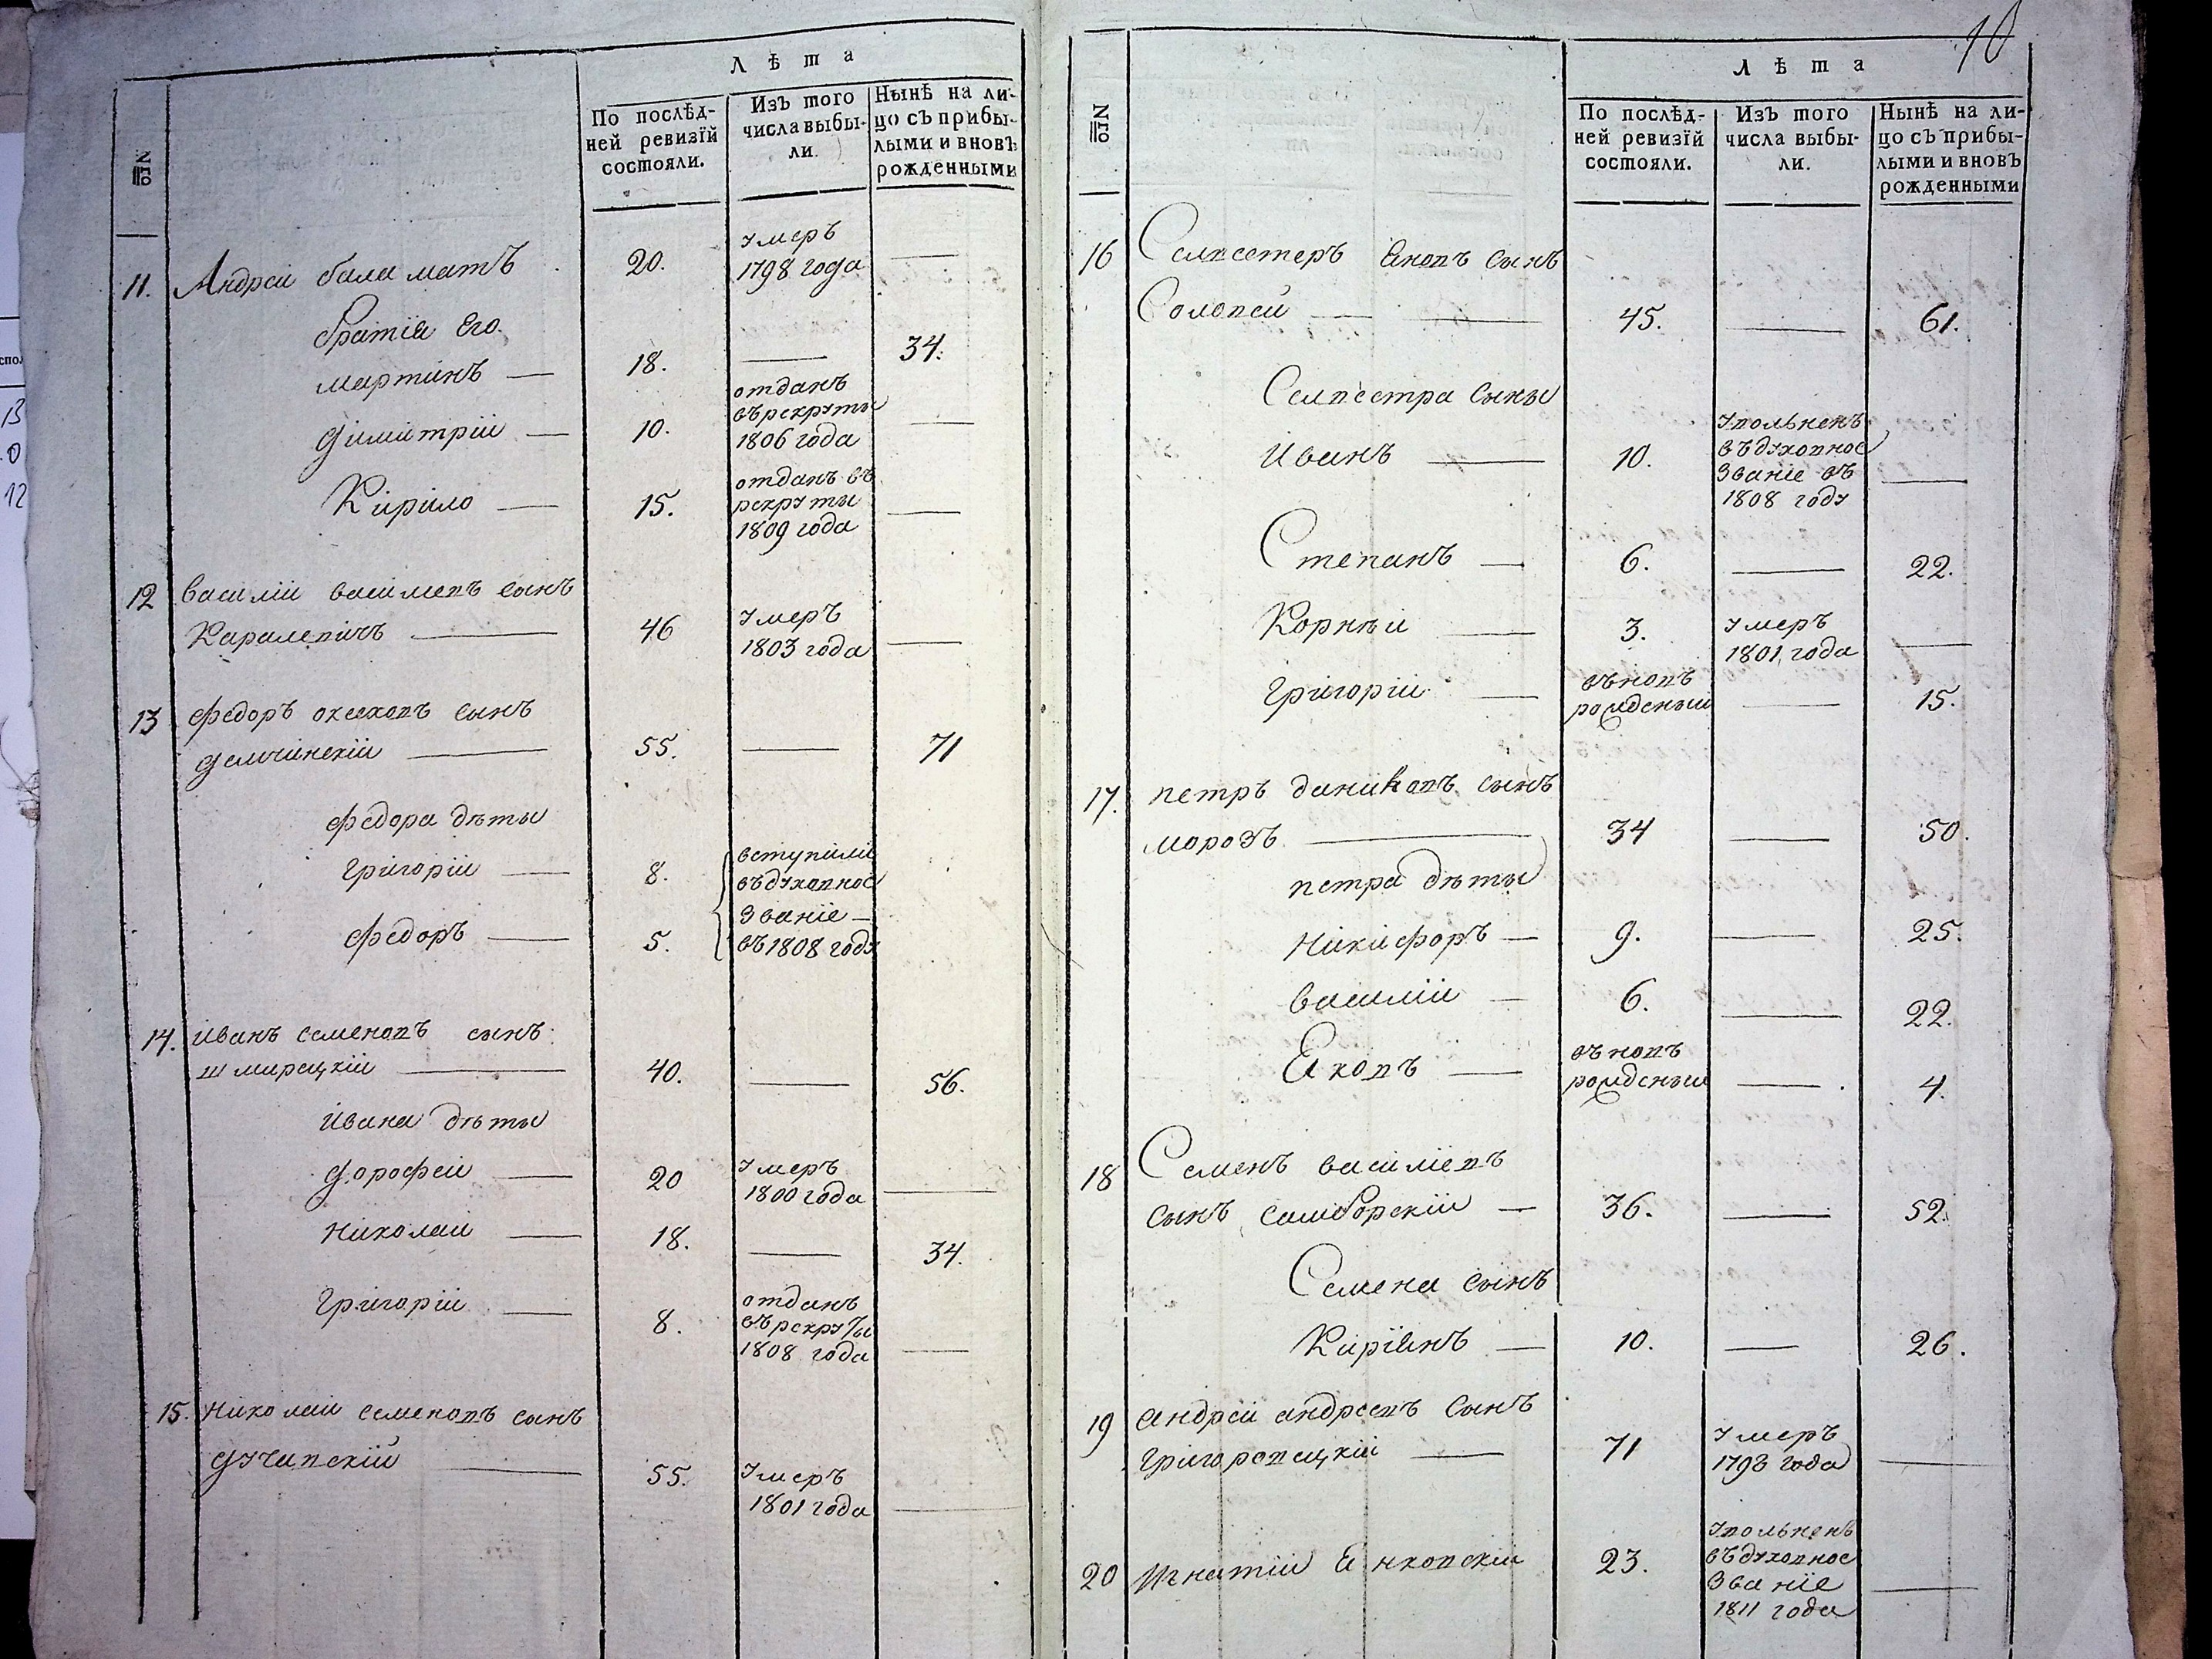 Лѣта
№
По послѣд-
ней ревизїй
состояли.
Изъ того
числа выбы-
ли.
Нынѣ на ли-
цо съ прибы-
лыми и вновь
рожденными
11. Андреи баламатъ 20. умеръ
1798 года —
братїя Его
мартинъ — 18. — 34.
Димитріи — 10. отданъ
въ рекруты
1806 года —
Кирило — 15. отданъ въ
рекруты
1809 года —
12 василіи васильевъ сынъ
Каралевичъ — 46 умеръ
1803 года —
13 федоръ сынъ
— 55. — 71
федора дѣты
григоріи — 8.
федоръ — 5.
вступили
въ духовное
Званїе —
въ 1808 году
14. иванъ семеновъ сынъ
— 40. — 56.
ивана дѣты
Дорофеи — 20 умеръ
1800 года —
николаи — 18. — 34.
григоріи — 8. отданъ
въ рекруты
1808 года —
15. николаи семеновъ сынъ
— 55. умеръ
1801 года —
10
Лѣта
№
По послѣд-
ней ревизїй
состояли.
Изъ того
числа выбы-
ли.
Нынѣ на ли-
цо съ прибы-
лыми и вновь
рожденными
16 Селвестеръ сынъ
Соловей — 45. — 61.
Селвестра сыны
иванъ — 10. увольненъ
въ духовное
Званіе въ
1808 году —
Степанъ — 6. — 22.
Корнѣи — 3. умеръ
1801 года —
григоріи — въновъ
рожденыи — 15.
17. петръ сынъ
морозъ — 34 — 50.
петра дѣты
никифоръ — 9. — 25.
василіи — 6. — 22.
Яковъ — въновъ
рожденыи — 4.
18 Семенъ василіевъ
сынъ самборскіи — 36. — 52.
Семена сынъ
Киріянъ — 10. — 26.
19 андреи андреевъ сынъ
григоровецкіи — 71 умеръ
1798 года —
20 игнатіи Янковскіи 23. увольненъ
въ духовное
Званїе
1811 года —